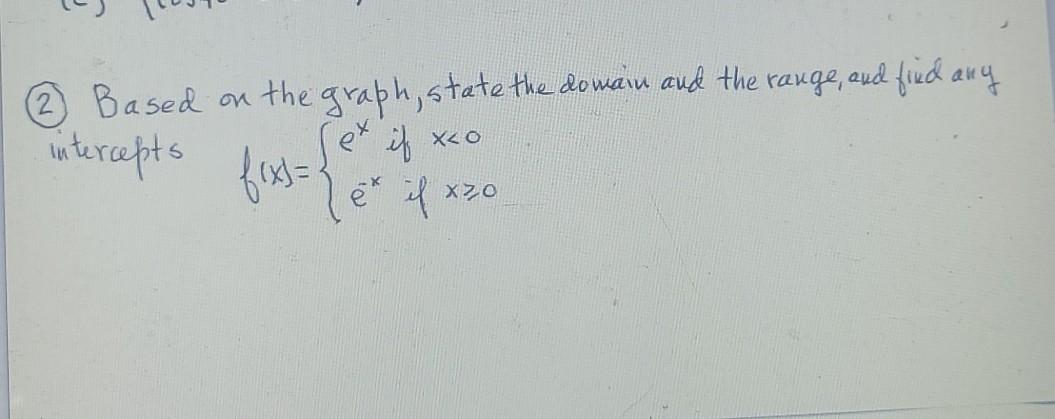 ② Based on the graph, state the domain and the range, and find any
intercepts f(x)= { e^x if x<0
e^-x if x≥0